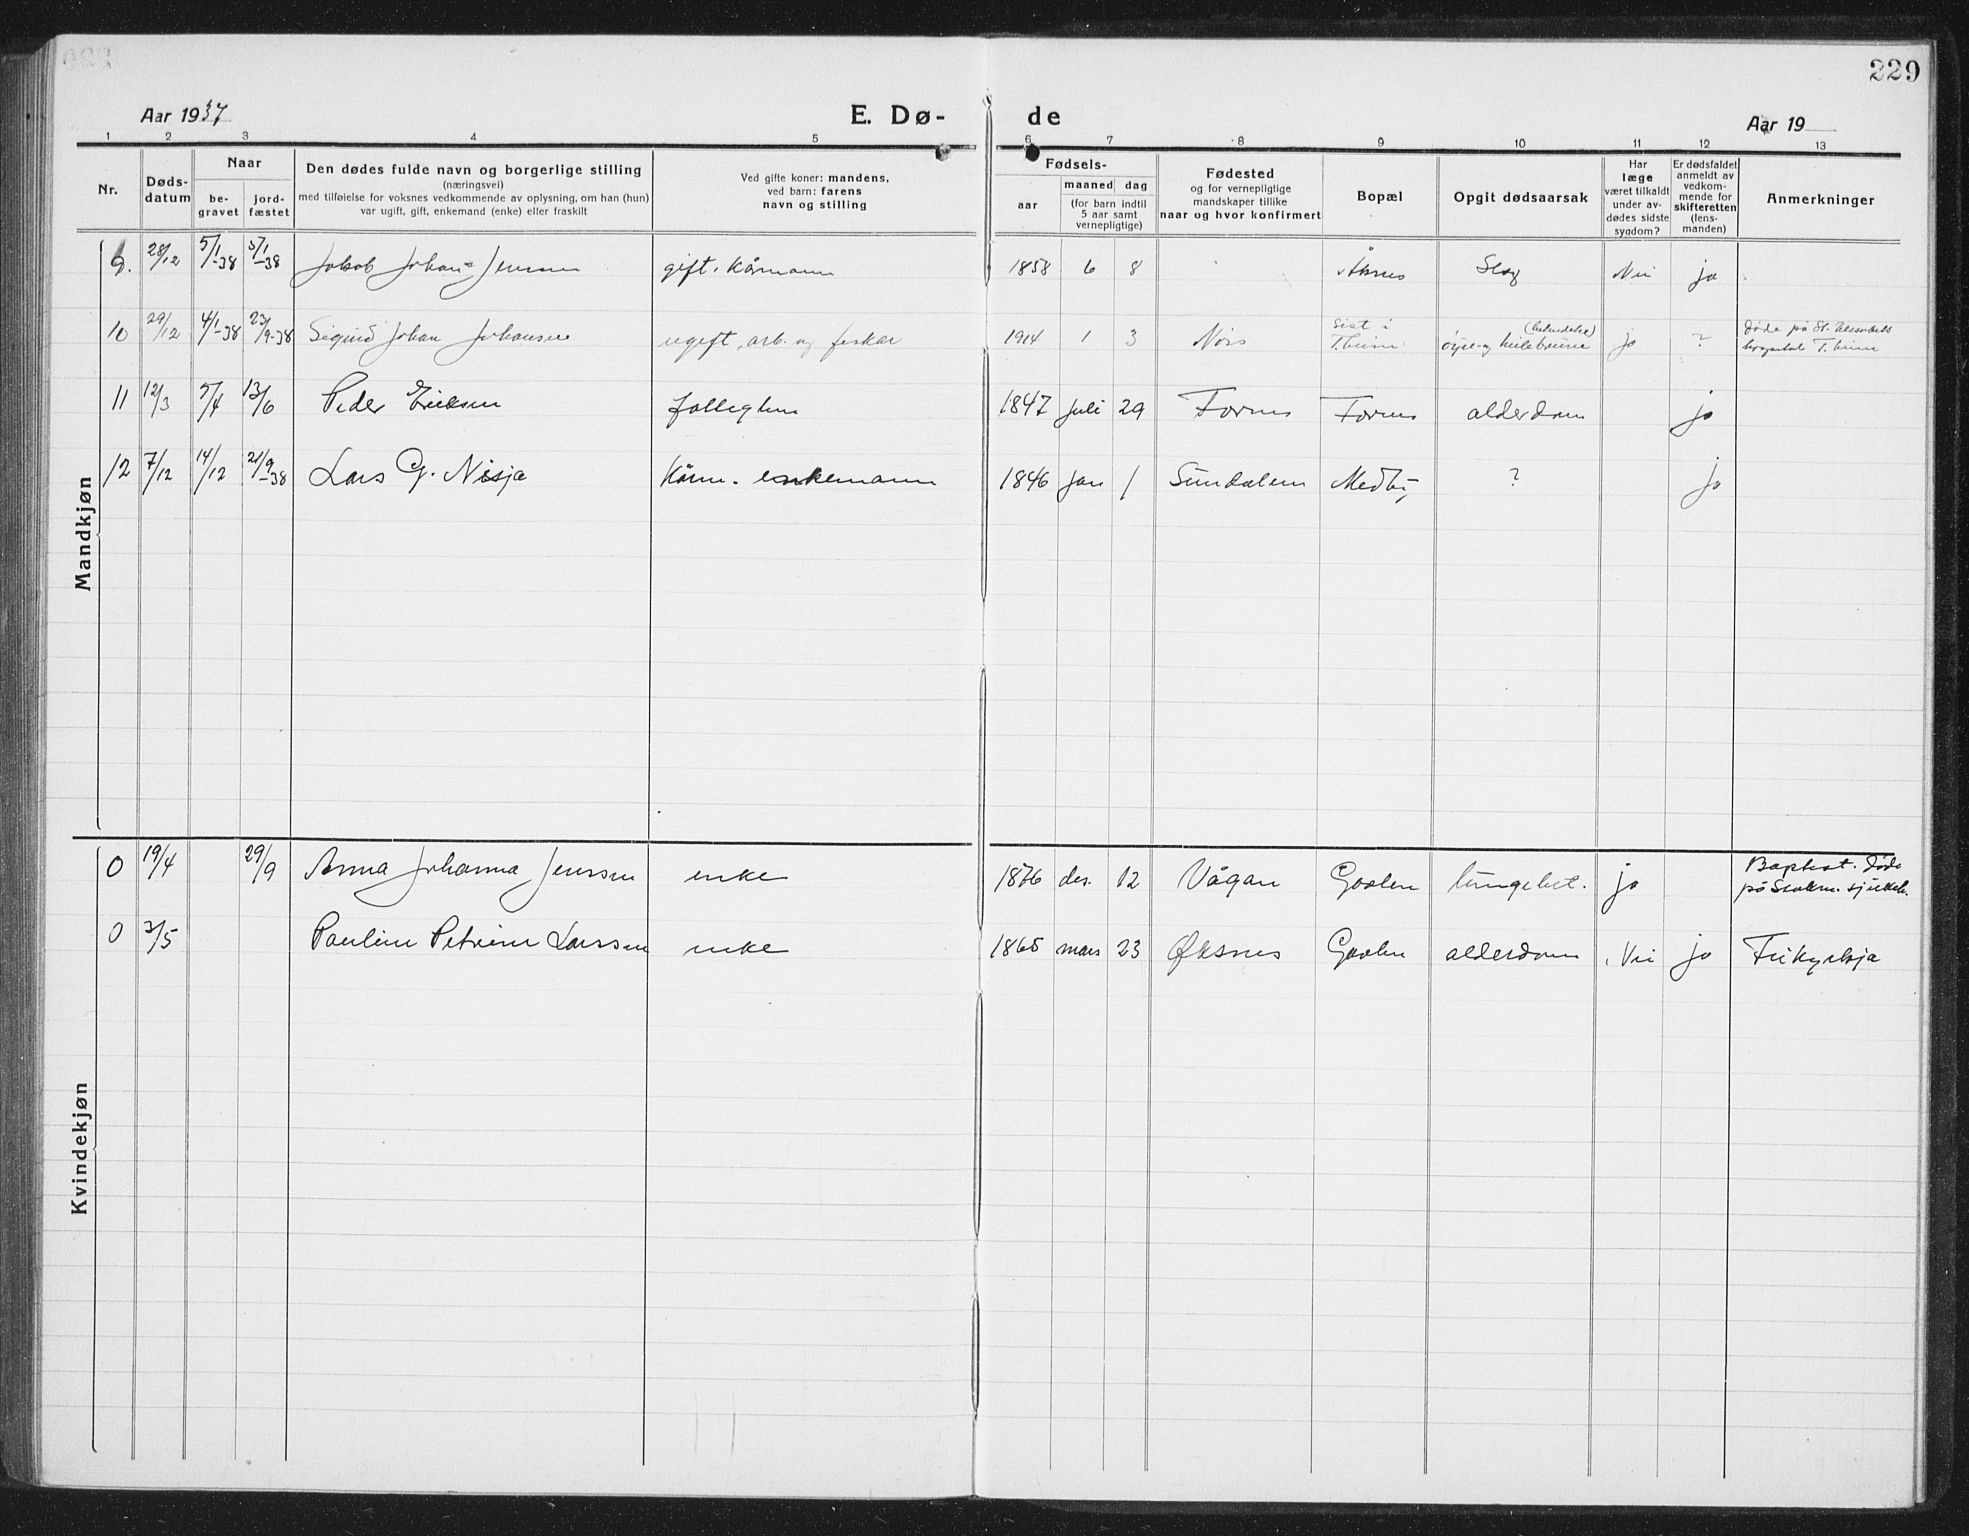 229
Aar 1937 E. Dø- de Aar 19
1 2 3 4 5 6 7 8 9 10 11 12 13
Nr.
Døds-
datum
Naar
be-
gravet
jord-
fæstet
Den dødes fulde navn og borgerlige stilling
(næringsvei)
med tilføielse for voksnes vedkommende av oplysning, om han (hun)
var ugift, gift, enkemand (enke) eller fraskilt
Ved gifte koner: mandens,
ved barn: farens
navn og stilling
Fødsels-
aar
maaned dag
(for barn indtil
5 aar samt
vernepligtige)
Fødested
og for vernepligtige
mandskaper tillike
naar og hvor konfirmert
Bopæl
Opgit dødsaarsak
Har
læge
været tilkaldt
under av-
dødes sidste
sygdom?
Er dødsfaldet
anmeldt av
vedkom-
mende for
skifteretten
(lens-
manden)
Anmerkninger
Mandkjøn
9. 28/12 5/1-38 5/1-38 Jakob Johan Jenssen gift. kårmann 1858 6 8 Åknes Slag Nei ja
10 29/12 4/1-38 23/9-38 Sigurd Johan Johansen ugift, arb. og fiskar 1914 1 3 Nöss sist i T.heim øyre- og heilebetene ja ? døde på St. Elisabeths hospital T.heim
11 12/3 5/4 13/6 Peder Eriksen 1847 juli 29 Fornes Fornes alderdom ja
12 7/12 14/12 21/9-38 Lars G. Nisja Kårm. enkemann 1846 jan 1 Sundalen Medby ? ja
Kvindekjøn
0 19/4 29/9 Anna Johanna Jenssen enke 1876 des. 12 Vågan Gavlen lungebet. ja Baptist. døde på Stokm. sjukeh.
0 3/5 Pauline Petrine Larssen enke 1865 mars 23 Øksnes Gavlen alderdom Nei ja Frikyrkja